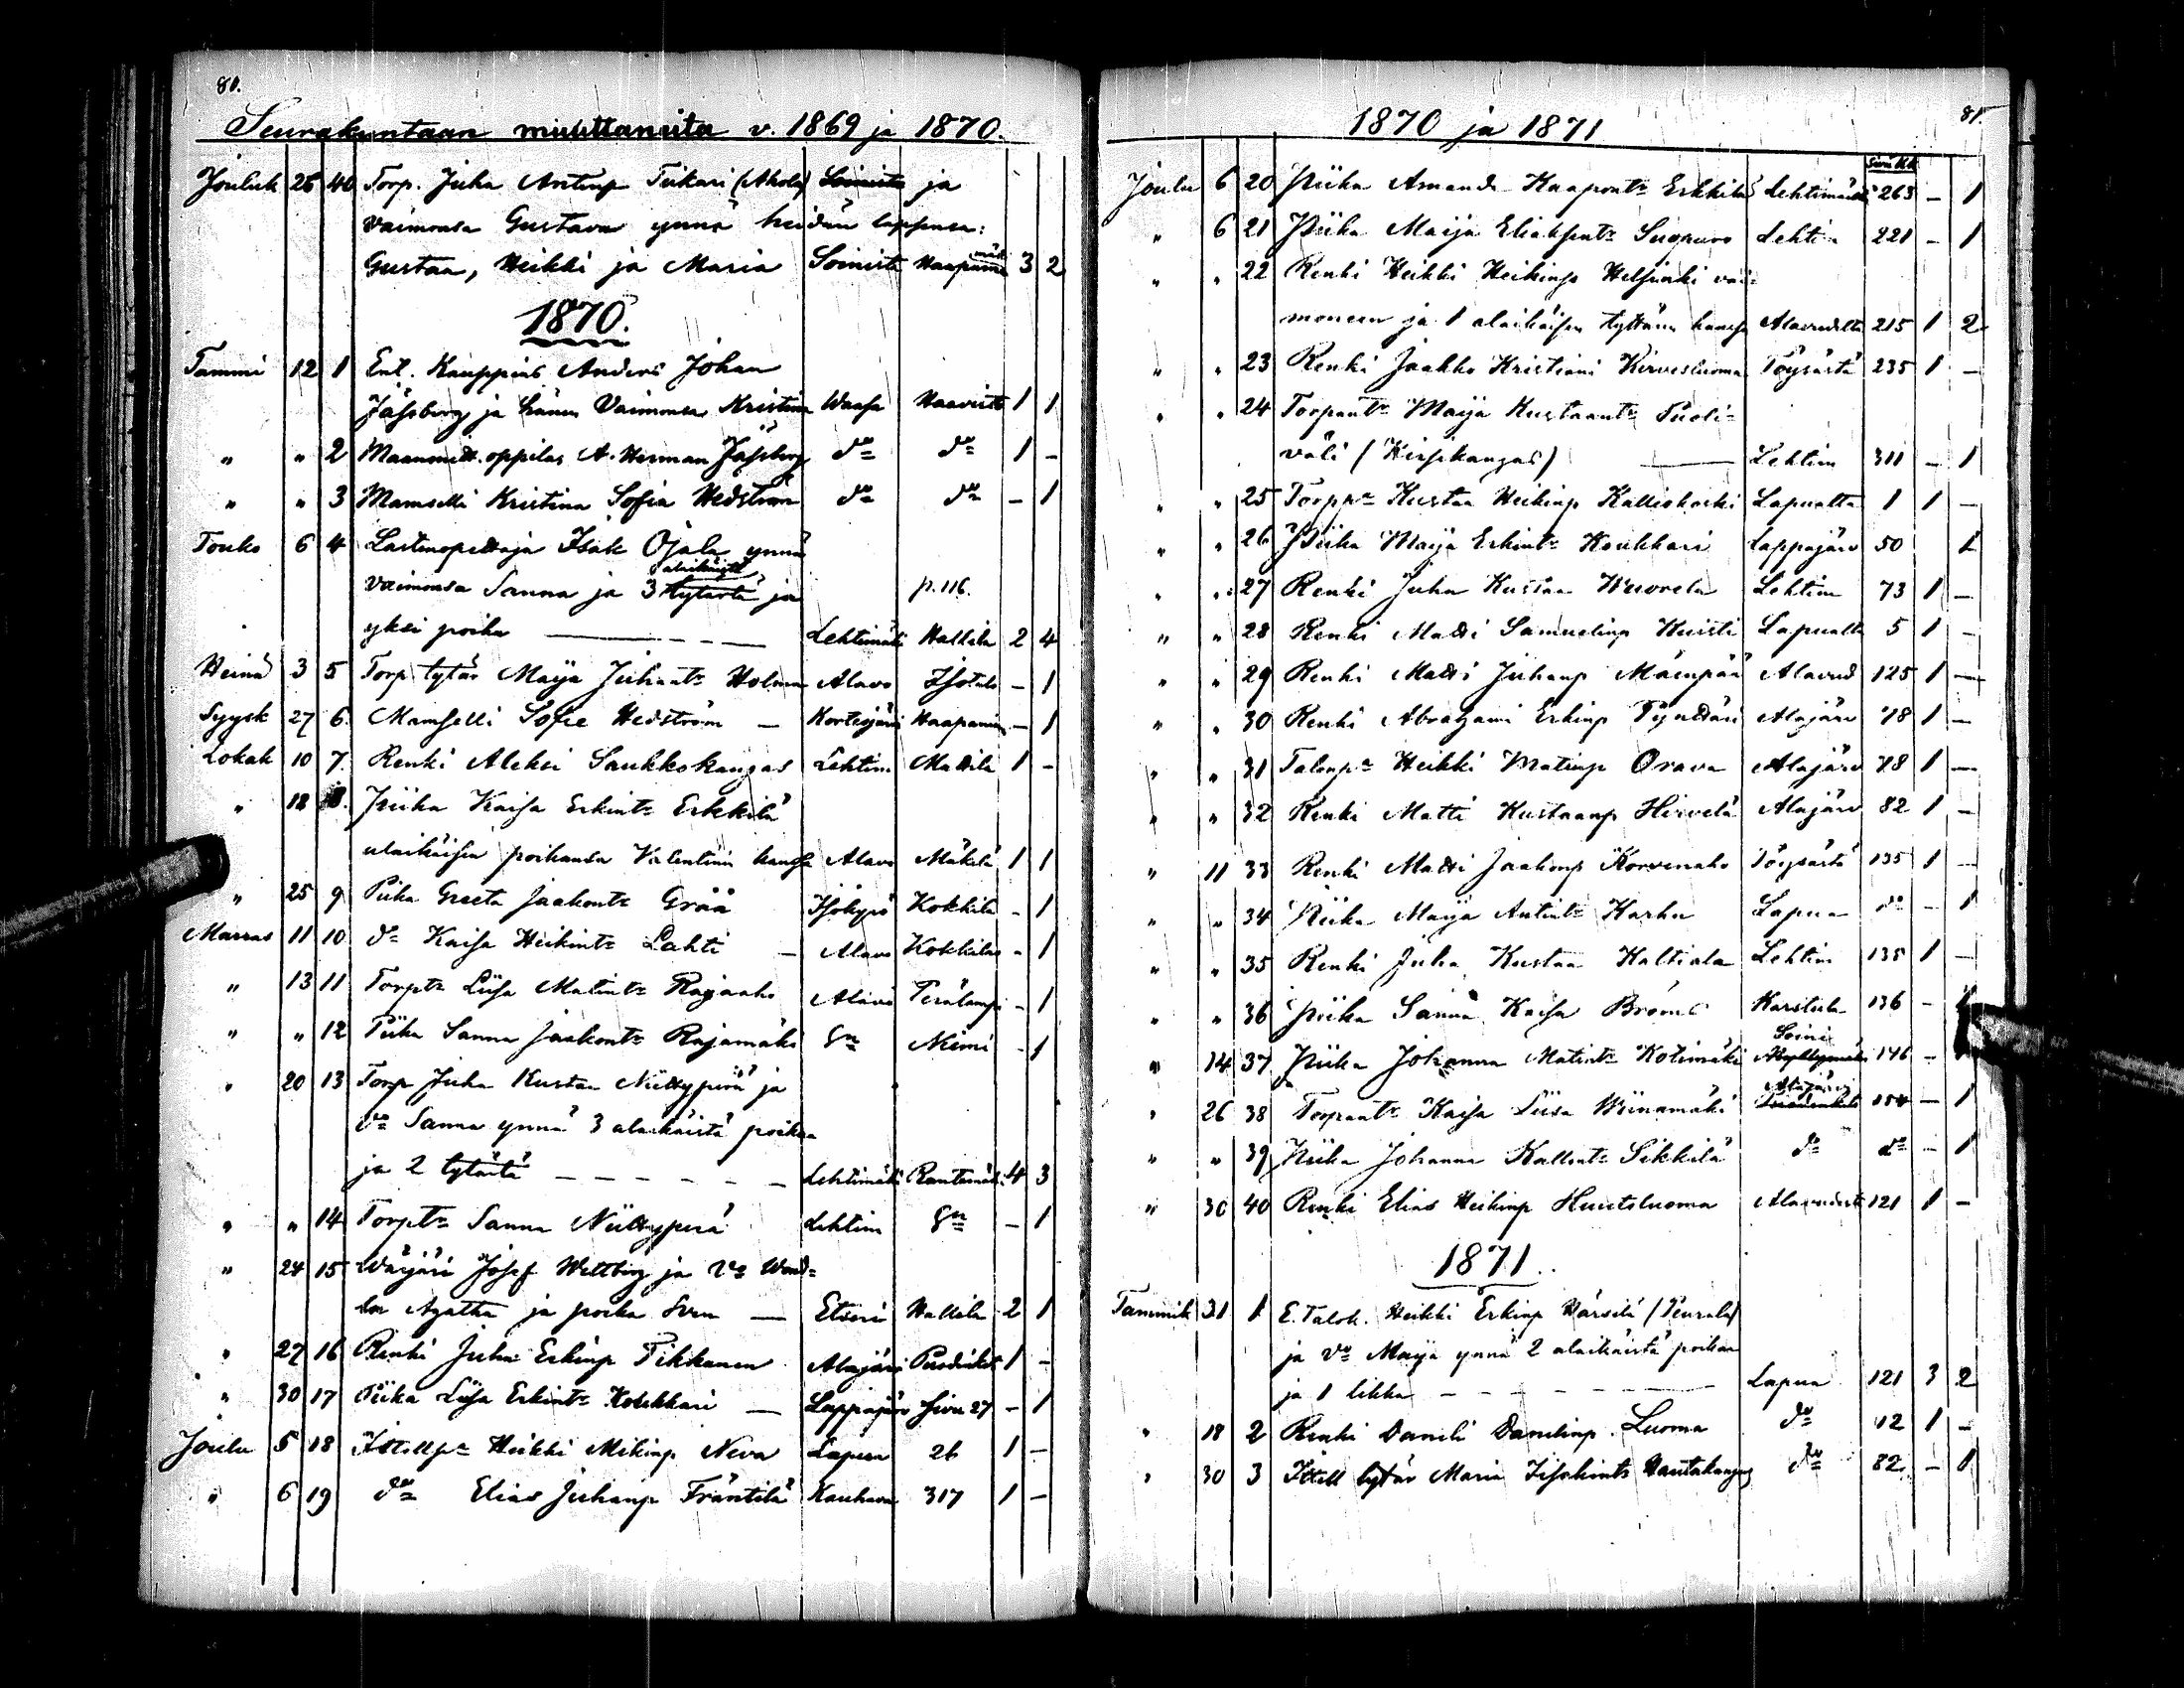 81.
Seurakuntaan muuttaneita v. 1869 ja 1870.
Jouluk 26 40 Torp. Juha Antinp Tiikari (Ahola) Soinista ja
vaimonsa Gustava ynnä heidän lapsensa:
Gustaa, Heikki ja Maria Soinista 3 2
1870.
Tammi 12 1 Ent. Kauppias Anders Johan
Jässberg ja hänen Vaimonsa Kristina Waasa Haavisto 1 1
" " 2 Maanmitt. oppilas A. Herman Jässberg do do 1 -
" " 3 Mamselli Kristina Sofia Hedström do do - 1
Touko 6 4 Lastenopettaja Isak Ojala ynnä
vaimonsa Sanna ja 3 alaikäistä tytärtä ja p. 116.
yksi poika — Lehtimäki Hallila 2 4
Heinä 3 5 Torp tytär Maija Juhant. Holma Alavo Isotalo - 1
Syysk 27 6. Mamselli Sofie Hedström — Kortesjärvi Haapanen - 1
Lokak 10 7 Renki Aleksi Saukkokangas Lehtim Mattila 1 -
" 18 8. Piika Kaisa Erkint. Erkkilä
alaikäisen poikansa Valentinin kanssa Alavo Mäkelä 1 1
" 25 9 Piika Greeta Jaakont. Gråå Isokyrö Kokkila - 1
Marras 11 10 do Kaisa Heikint. Lahti — Alavo Kokkila - 1
" 13 11 Torpt. Liisa Matint. Rajaaho Alavo Terälampi - 1
" " 12 Piika Sanna Jaakont. Rajamäki Sn Niemi - 1
" 20 13 Torp Juha Kustaa Niittyperä ja
Vo Sanna ynnä 3 alaikäistä poikaa
ja 2 tytärtä — Lehtimäki Rantamäk. 4 3
" " 14 Torpt. Sanna Niittyperä Lehtim Sn - 1
" 24 15 Wärjäri Josef Wettberg ja Vo Wend-
la Agatha ja poika Sven — Etseri Hallila 2 1
" 27 16 Renki Juha Erkinp Tikkanen Alajärvi 1 -
" 30 17 Piika Liisa Erkint. Koukkari — Lappajärv Sivu 27 - 1
Joulu 5 18 Itsellp. Heikki Mikinp Neva Lapua 26 1 -
" 6 19 do Elias Juhanp Fräntilä Kauhava 317 1 -
81.
1870 ja 1871
Sivu KK
Joulu 6 20 Piika Amanda Kaapont. Erkkilä Lehtimäeltä 263 - 1
" 6 21 Piika Maija Eliaksent. Suopuro Lehtim 221 - 1
" " 22 Renki Heikki Heikinp Helsinki vai-
moneen ja 1 alaikäisen tyttären kanssa Alavudelta 215 1 2
" " 23 Renki Jaakko Kristiani Kirvesluoma Töysästä 235 1 -
" " 24 Torpant. Maija Kustaant. Puoli-
väli (Kirsikangas) — Lehtim 311 - 1
" " 25 Torpp. Kustaa Heikinp Kalliokoski Lapualta 1 1 -
" " 26 Piika Maija Erkint. Koukkari Lappajärv 50 1
" " 27 Renki Juha Kustaa Wuorela Lehtim 73 1 -
" " 28 Renki Matti Samuelinp Huisti Lapualta 5 1 -
" " 29 Renki Matti Juhanp Mäenpää Alavud 125 1 -
" " 30 Renki Abrahami Erkinp Alajärv 78 1 -
" " 31 Talonp. Heikki Matinp Orava Alajärv 78 1 -
" " 32 Renki Matti Kustaanp Hirvelä Alajärv 82 1 -
" 11 33 Renki Matti Jaakonp Korvenaho Töysästä 135 1 -
" " 34 Piika Maija Antint. Karhu Lapua do - 1
" " 35 Renki Juha Kustaa Kaltiala Lehtim 135 1 -
" " 36 Piika Sanna Kaisa Karstula 136 - 1
Soini
" 14 37 Piika Johanna Matint. Kotimäki 146 -
Alajärvi
" 26 38 Torpant. Kaisa Liisa Wiinamäki 154 - 1
" " 39 Piika Johanna Kallent. Sikkilä do do - 1
" 30 40 Renki Elias Heikinp Huutoluoma Alavudesta 121 1 -
1871.
Tammik 31 1 E. Talok. Heikki Erkinp Härsilä (Peurala)
ja Vo Maija ynnä 2 alaikäistä poikaa
ja 1 likka — Lapua 121 3 2
" 18 2 Renki Daneli Danelinp. Luoma do 12 1 -
" 30 3 Itsell tytär Maria Hautakangas do 82 - 1